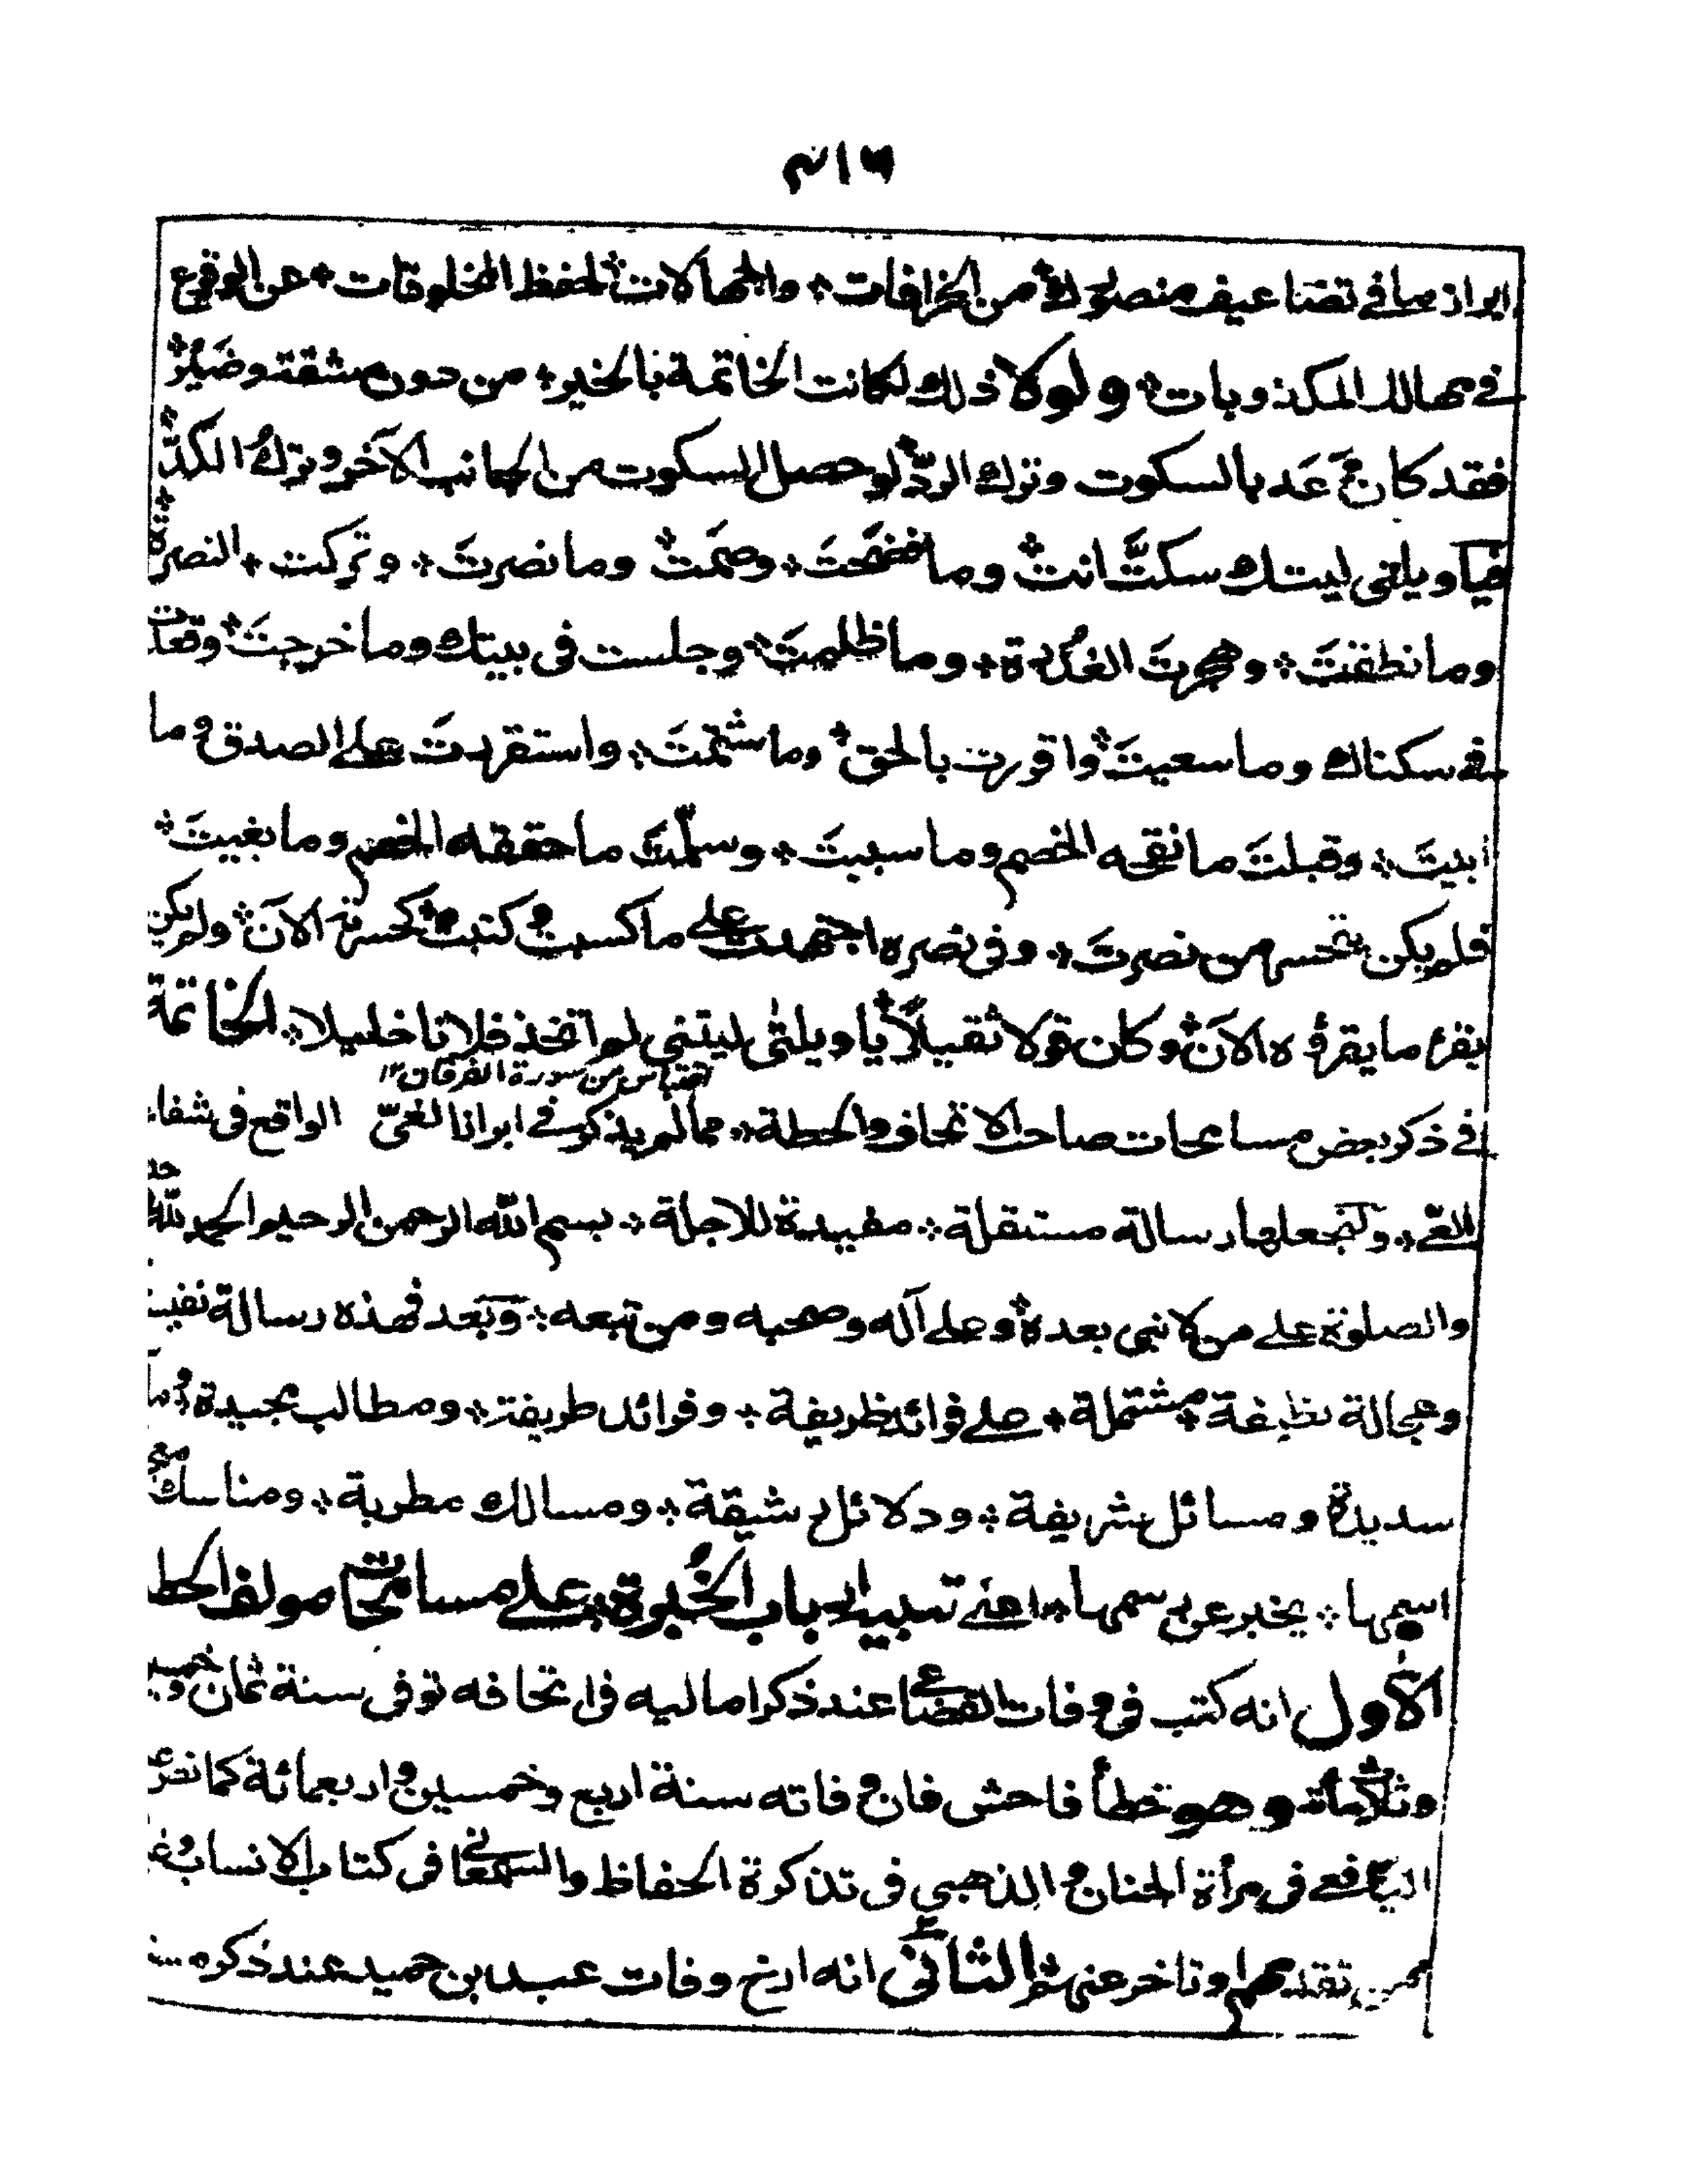 ٤١٦
ابراز ما في تضاعيف منصورك من الخرافات * والجهالات * لحفظ المخلوقات * عن الوقوع
في مهالك المكذوبات * ولولا ذلك لكانت الخاتمة بالخير * من دون مشقة وضير *
فقد كان وعد بالسكوت وترك الردّ * لو حصل السكوت من الجانب الآخر وترك الكدّ *
فيا ويلتى ليتك سكتَّ انت * وما فضحتَ * وصمتَ * وما نصرت * وتركت * النصرة *
وما نطقتَ * وهجرتَ الغُدرة * وما ظلمتَ * وجلست في بيتك وما خرجتَ * وقعدت
في سكناك وما سعيتَ * واقررت بالحق * وما شتمتَ * واستقررتَ على الصدق وما
ابيتَ * وقبلتَ ما نقحه الخصم وما سببتَ * وسلّمتَ ما حققه الخصم وما بغيتَ *
فلم يكن يتحسر من نصرتَ * وفي نصره اجتهدت على ما كسبت وكتبت * كحسرته الآن * ولم يكن
يقرء ما يقرؤه الآن * وكان قولا ثقيلاً * يا ويلتى ليتني لم اتخذ فلانا خليلا * الخاتمة
اقتباس من سورة الفرقان ١٢
في ذكر بعض مسامحات صاحب الاتحاف والحطة * مما لم يذكر في ابراز الغيّ الواقع في شفاء
العي * ولنجعلها رسالة مستقلة * مفيدة للاجلة * بسم الله الرحمن الرحيم الحمد لله وحده
والصلوة على من لا نبي بعده * وعلى آله وصحبه ومن تبعه * وبعد فهذه رسالة نفيسة
وعجالة نظيفة * مشتملة * على فوائد ظريفة * وفرائد طريفة * ومطالب مجيدة
سديدة ومسائل شريفة * ودلائل رشيقة * ومسالك مطربة * ومناسك
اسمها * يخبر عن رسمها * اعني تنبيه ارباب الخبرة * على مسامحات مولف الحطة
الأول انه كتب في وفات القضاعي عند ذكر اماليه في اتحافه توفي سنة ثمان وخمسين
وثلاثمأته وهو خطأ فاحش فان وفاته سنة اربع وخمسين واربعمائة كما نص عليه
اليافعي في مرأة الجنان والذهبي في تذكرة الحفاظ والسمعاني في كتاب الانساب
ممن تقدمهم او تاخر عنهم الثاني انه ارخ وفات عبد بن حميد عند ذكره